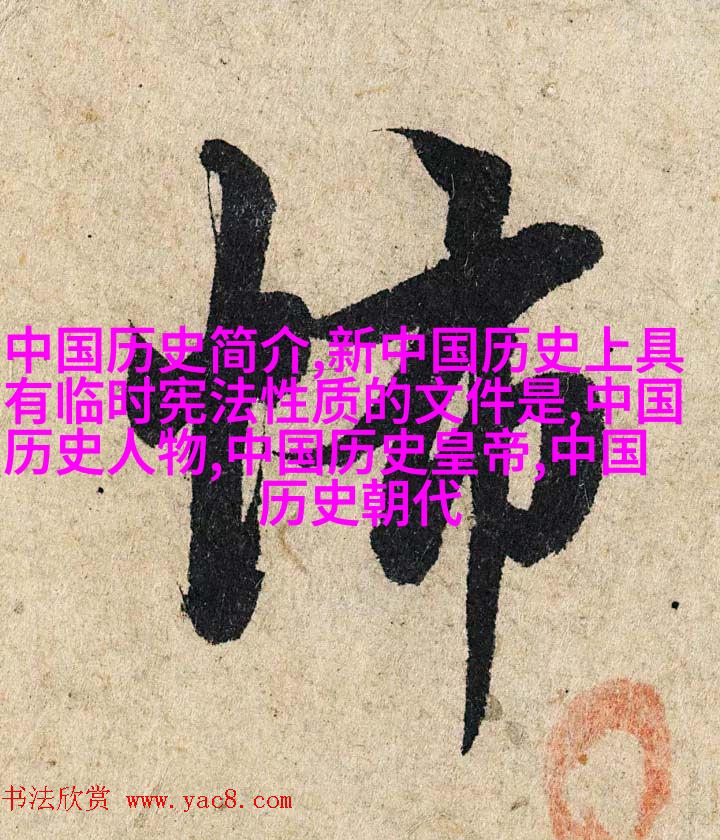 中国历史简介,新中国历史上具
有临时宪法性质的文件是,中国
历史人物,中国历史皇帝,中国
历史朝代
书法欣赏 www.yac8.com